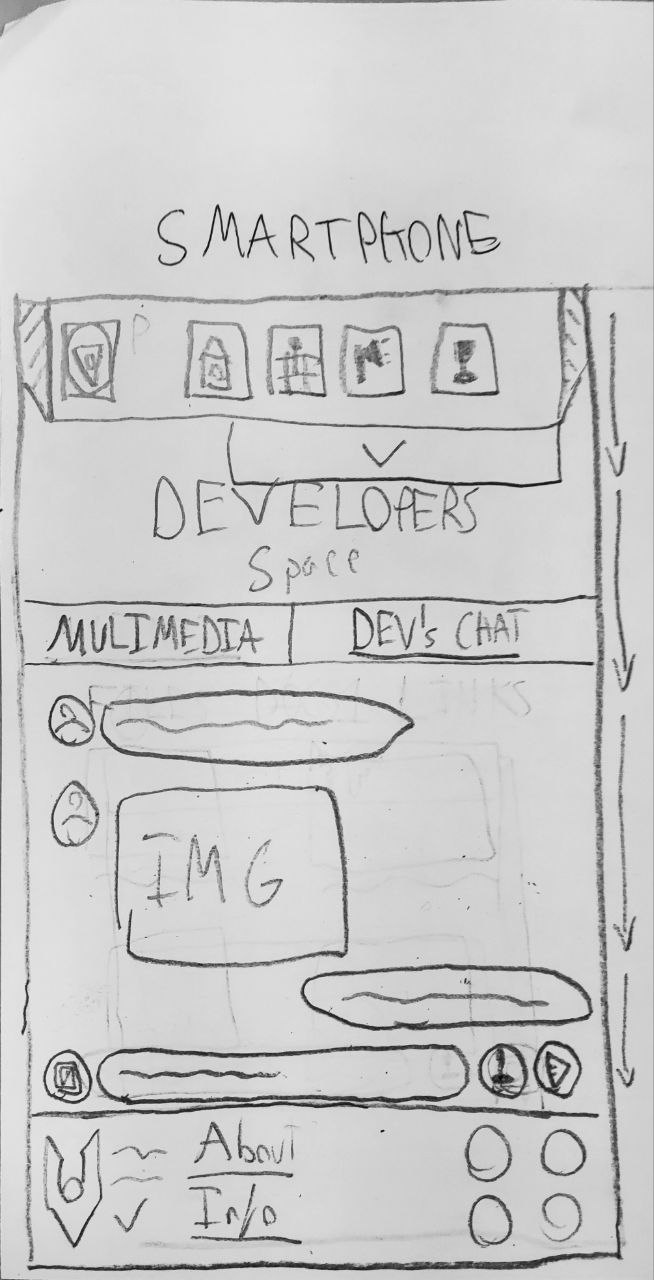 SMARTPHONE
DEVELOPERS
Space
MULIMEDIA DEV's CHAT
IMG
About
Info